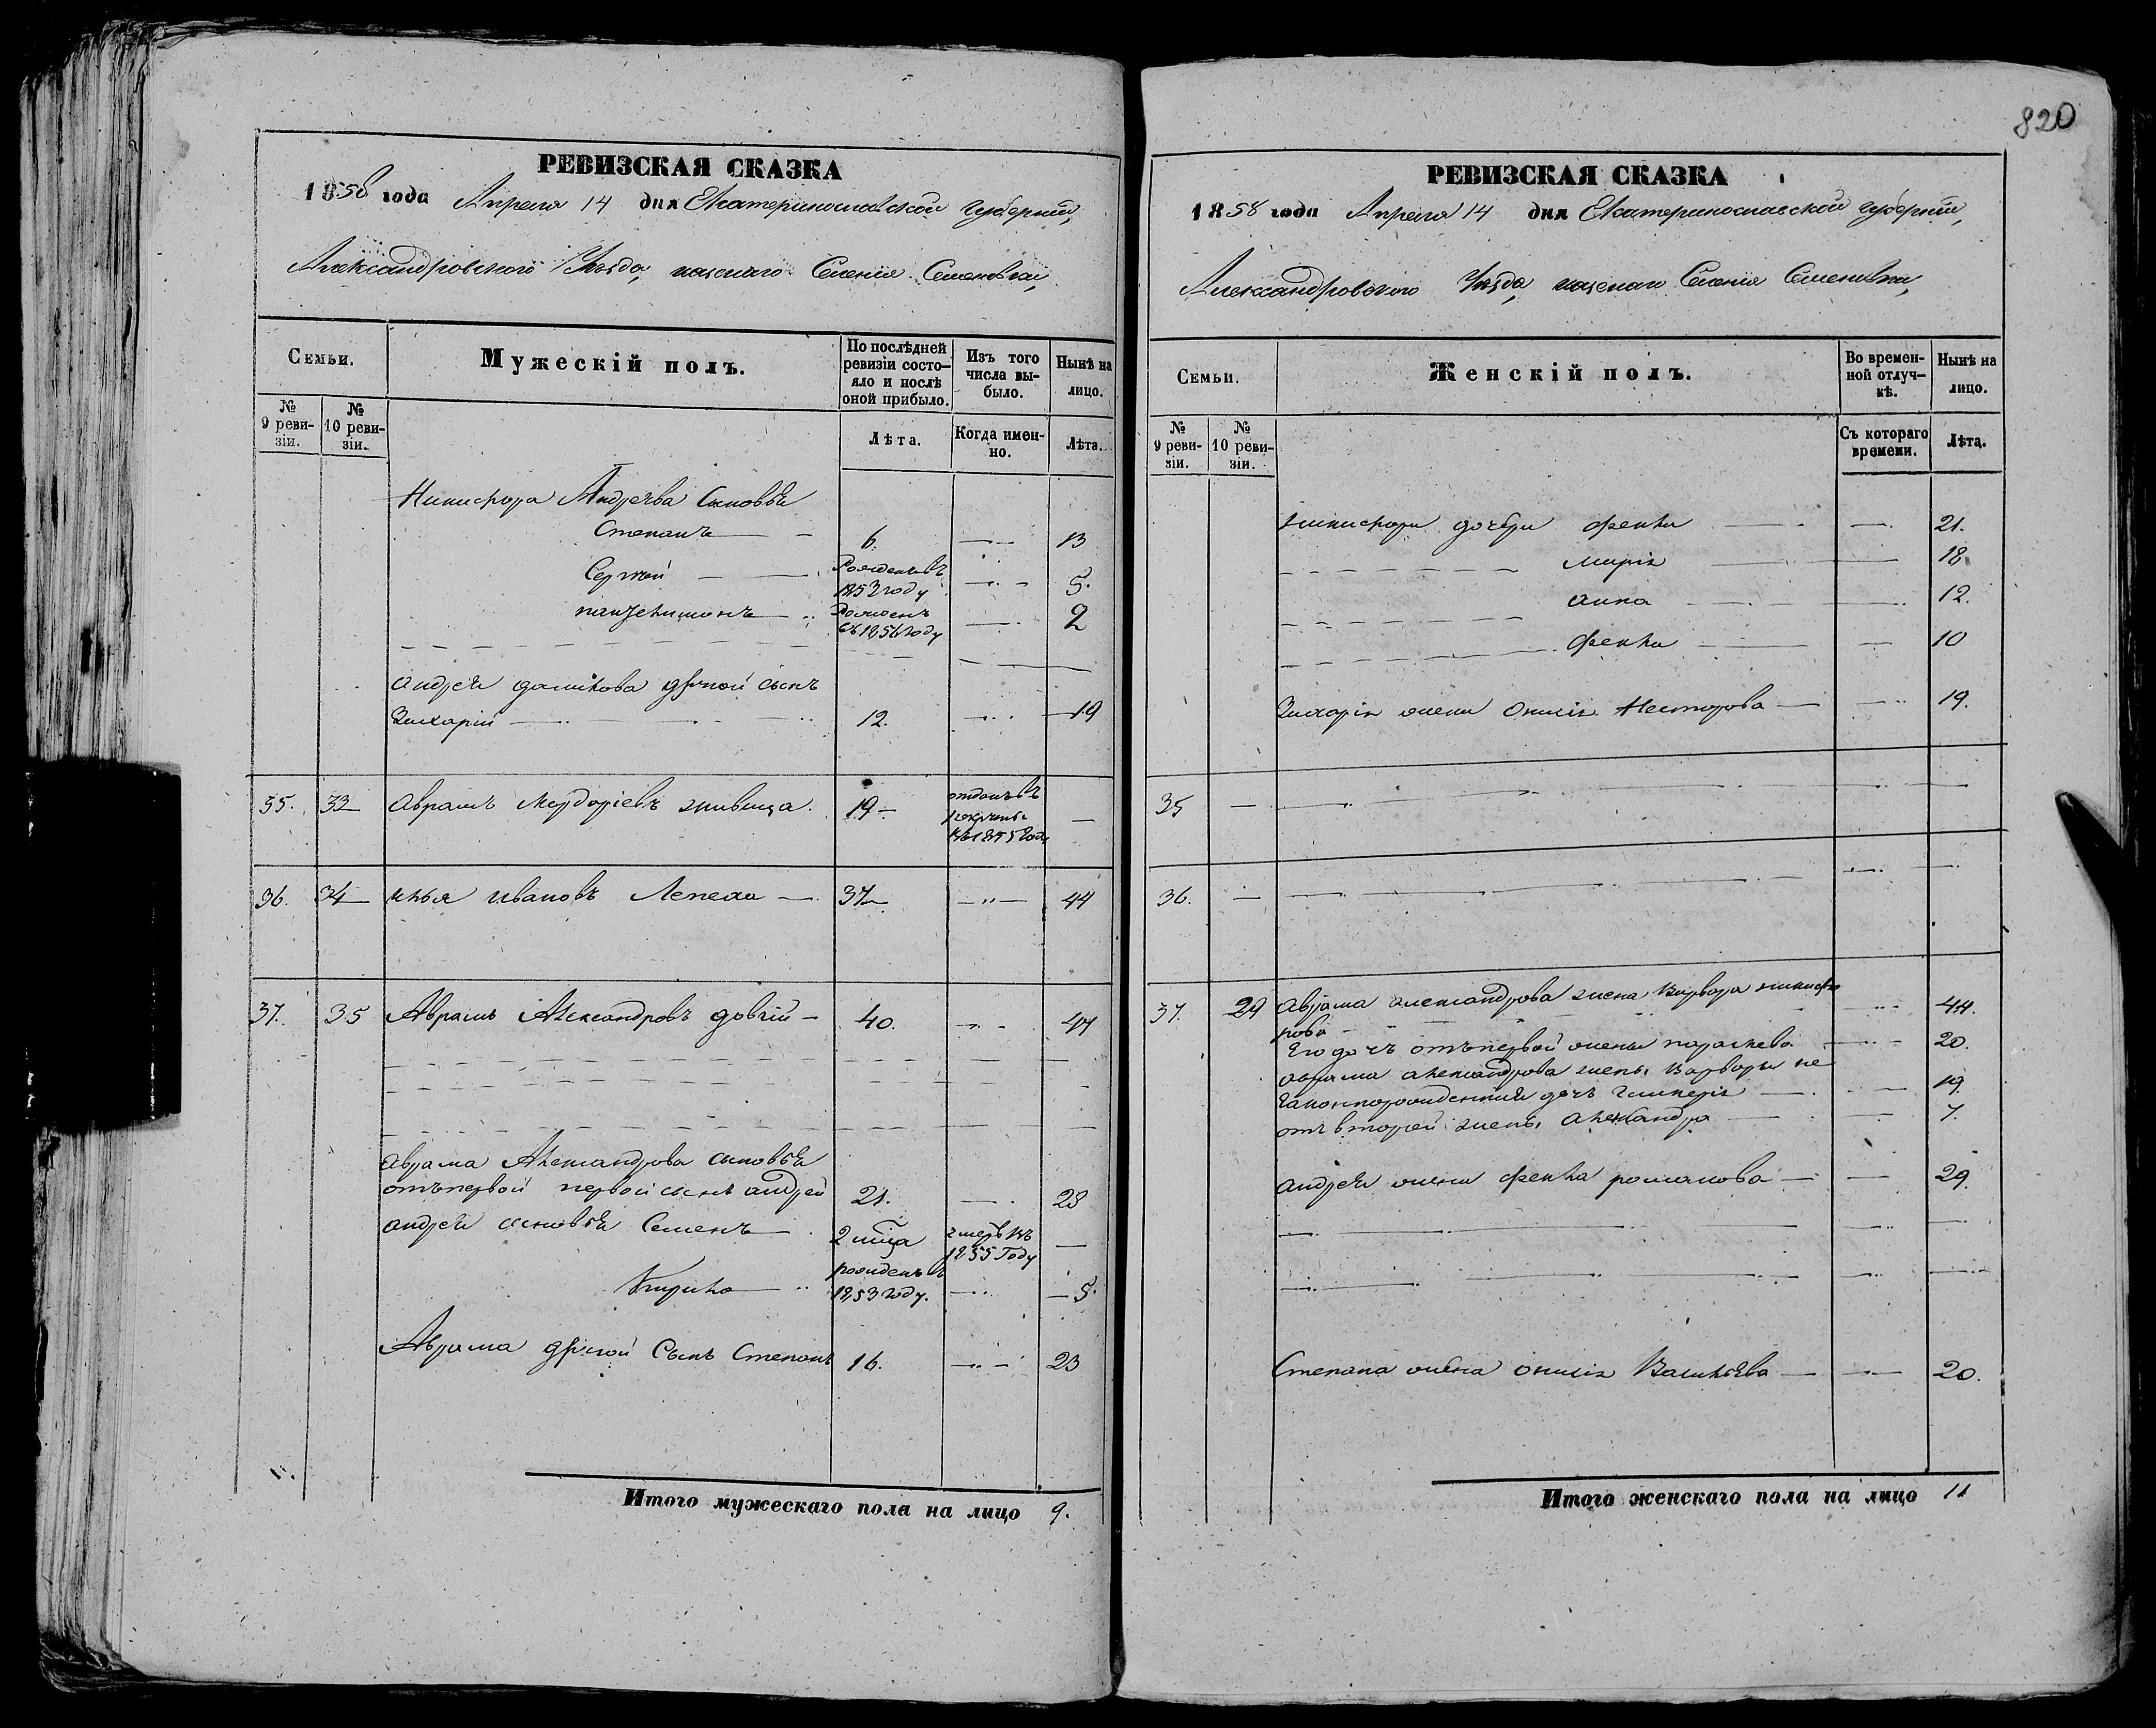 820
РЕВИЗСКАЯ СКАЗКА
1858 года Апреля 14 дня Екатеринославской Губернии,
Александровского Уезда, казенаго Селения Семеновки,
Семьи.
Мужескій полъ.
По послѣдней ревизіи состо-яло и послѣ оной прибыло.
Изъ того числа вы-было.
Нынѣ на лицо.
№ 9 реви-зіи.
№ 10 реви-зіи.
Лѣта.
Когда имен-но.
Лѣта.
Никифора Андреева Сыновья
Степанъ 6. 13
Сергей Рожденъ въ 1853 году 5.
Рожденъ въ 1856 году 2
Андрея другой сынъ
Захарий 12. 19
35. 33 Аврамъ 19 отданъ въ рекруты
36. 34 Илья Ивановъ Лепеха 37 44
37. 35 Аврамъ Александровъ довгій 40. 47
Аврама Александрова сыновья
отъ первой первой сынъ Андрей 21. 28
Андрея сыновья Семенъ 2 умеръ въ 1855 Году
рожденъ в 1853 году. 5.
Аврама другой Сынъ Степанъ 16. 23
Итого мужескаго пола на лицо 9.
РЕВИЗСКАЯ СКАЗКА
1858 года Апреля 14 дня Екатеринославской Губернии,
Александровского Уезда, казенаго Селения Семеновки,
Семьи.
Женскій полъ.
Во времен-ной отлуч-кѣ.
Нынѣ на лицо.
№ 9 реви-зіи.
№ 10 реви-зіи.
Съ котораго времени.
Лѣта.
Никифора дочери Фекла 21.
Марія 18
Анна 12.
Фекла 10
Захарія жена Нестерова 19.
35
36.
37. 29 Аврама Александрова жена Варвара Никифо
рова 44.
Его дочь отъ первой жены параскева 20.
Аврама Александрова жены Варвары не
законнорожденная дочь 19.
отъ второй жены Александра 7.
Андрея жена Фекла романова 29.
Степана жена Васильева 20.
Итого женскаго пола на лицо 11